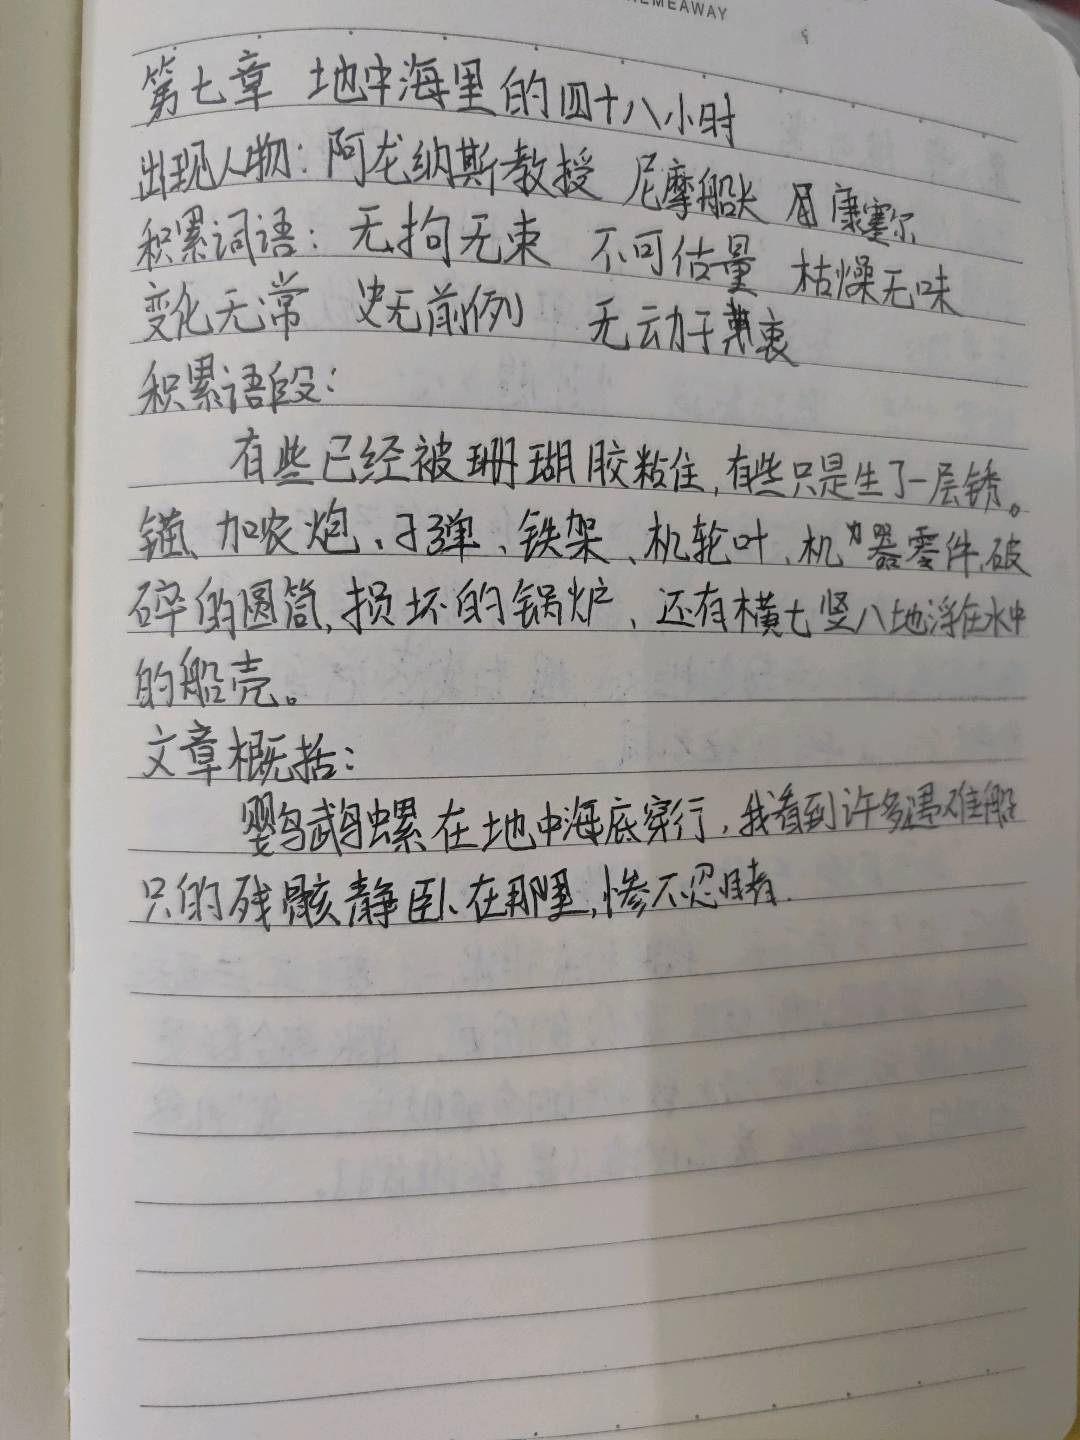 EMEAWAY
第七章 地中海里的四十八小时
出现人物：阿龙纳斯教授 尼摩船长 康塞尔
积累词语：无拘无束 不可估量 枯燥无味
变化无常 史无前例 无动于衷
积累语段：
有些已经被珊瑚胶粘住，有些只是生了一层锈。
锚、加农炮、子弹、铁架、机轮叶、机器零件、破
碎的圆筒，损坏的锅炉、还有横七竖八地浮在水中
的船壳。
文章概括：
鹦鹉螺在地中海底穿行，我看到许多遇难船
只的残骸静卧在那里，惨不忍睹.